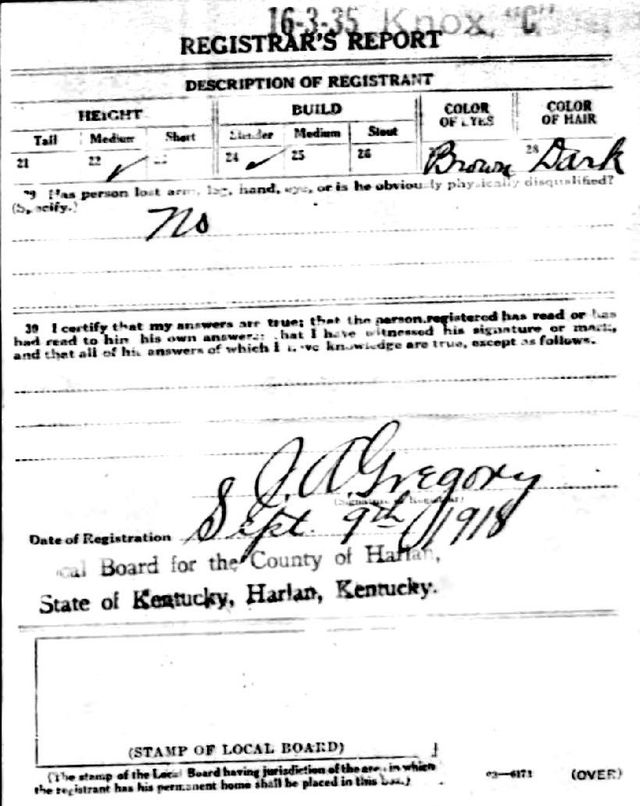 16-3-35 Knox, "C"
REGISTRAR'S REPORT
DESCRIPTION OF REGISTRANT
HEIGHT BUILD COLOR OF EYES COLOR OF HAIR
Tall Medium Short Slender Medium Stout
21 22 ✓ 24 ✓ 25 26 Brown 28 Dark
29 Has person lost arm, leg, hand, eye, or is he obviously physically disqualified?
(Specify.) No
30 I certify that my answers are true; that the person registered has read or has
had read to him his own answers; that I have witnessed his signature or mark,
and that all of his answers of which I have knowledge are true, except as follows.
J. A. Gregory
(Signature of Registrar)
Date of Registration Sept. 9th 1918
Local Board for the County of Harlan,
State of Kentucky, Harlan, Kentucky.
(STAMP OF LOCAL BOARD)
(The stamp of the Local Board having jurisdiction of the area in which
the registrant has his permanent home shall be placed in this box.)
03—6171 (OVER)